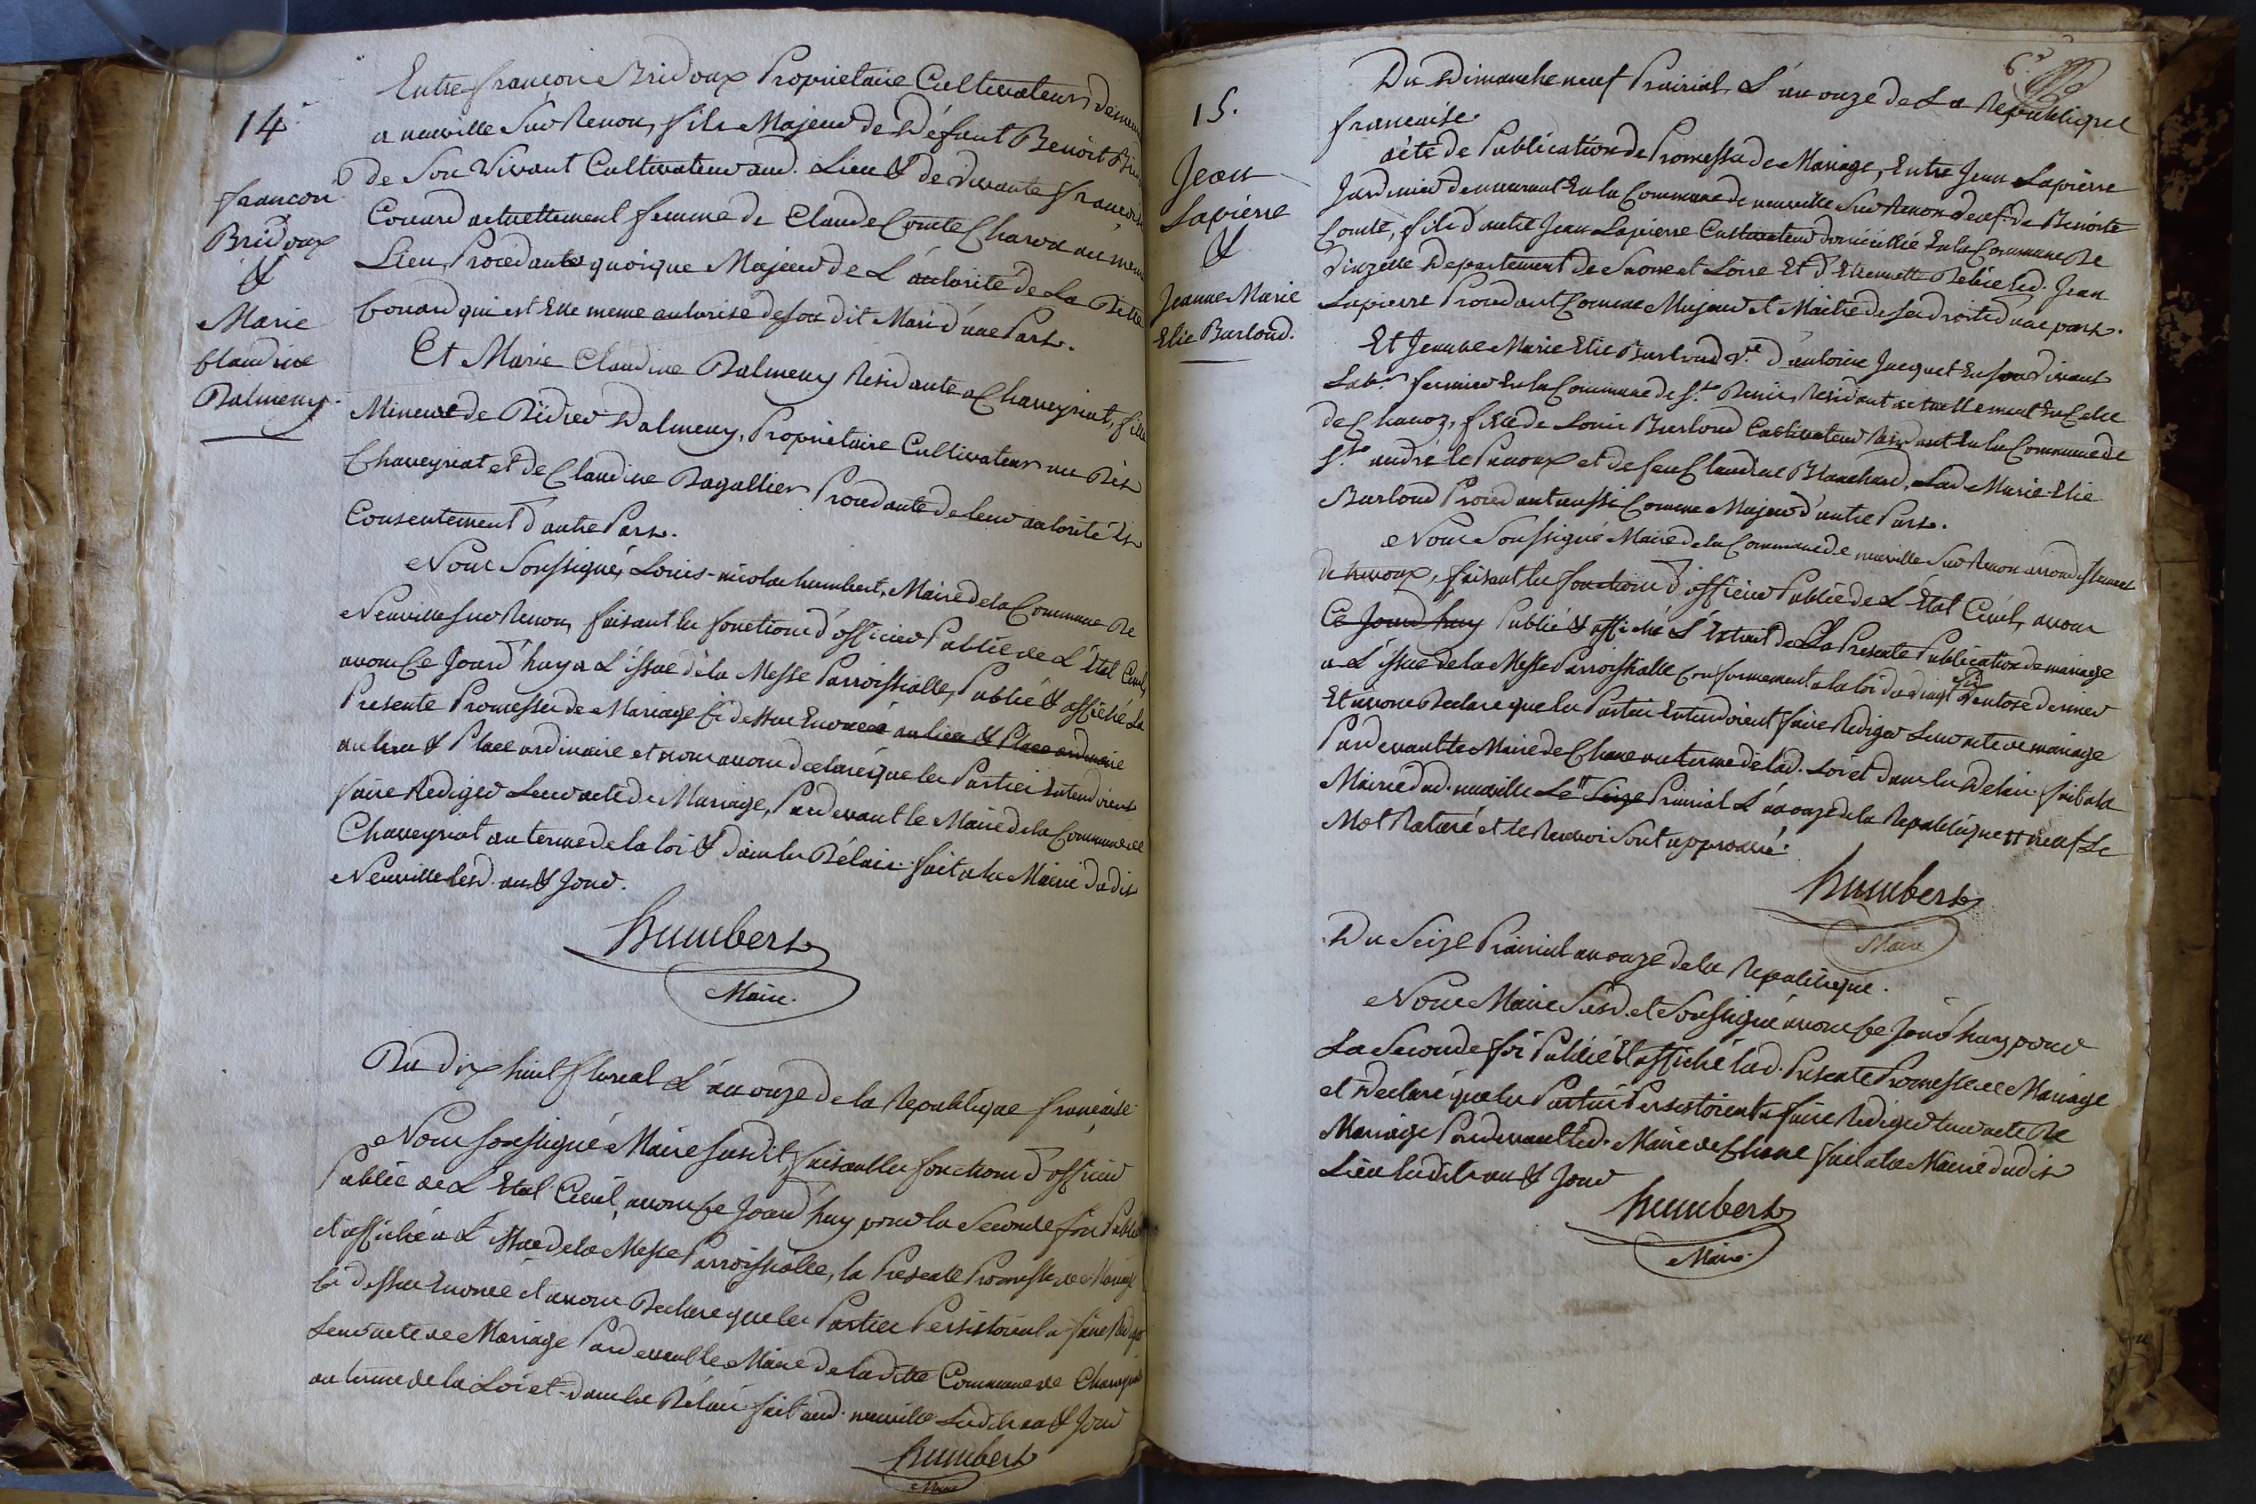 14.
françois
Bridoux
&
Marie
Claudine
Dalmeny.
Entre françois Bridoux Proprietaire Cultivateur demeur
a neuville Sur Renon, fils Majeur de Défunt Benoit
de Son Vivant Cultivateur aud. Lieu & de vivante françoise
Couard actuellement femme de Claude Comte Charon au meme
Lieu, Procedante quoique Majeur de L'autorité de La Ditte
Couard qui est Elle meme autorisé de son dit Mari d'une Part.
Et Marie Claudine Dalmeny Residante a Chaveyriat, fille
Mineure de Didier Dalmeny, Proprietaire Cultivateur au Dit
Chaveyriat et de Claudine Ragallier Procedante de leur autorité &
Consentement d'autre Part.
Nous Soussigné, Louis-nicolas humbert, Maire de la Commune de
Neuville sur Renon, faisant les fonctions d'officier Public de L'État Civil,
avons Ce Jourd'huy a L'issue de la Messe Parroissialle, Publié & affiché La
Presente Promesse de Mariage Ci dessus Enoncée au lieu & Place ordinaire
au lieu & Place ordinaire et nous avons declaré que les Parties Entendoient
faire Rediger Leur acte de Mariage, Pardevant le Maire de la Commune de
Chaveyriat au terme de la loi & dans les Délais. fait a la Mairie du dit
Neuville lesd. an & Jour.
humbert
Maire.
Du dix huit floreal L'an onze de la Republique française
Nous soussigné Maire susdit, faisant les fonctions d'officier
Public de L'Etat Civil, avons Ce Jourd'huy pour la Seconde fois Publié
et affiché a L'issue de la Messe Parroissialle, la Presente Promesse de Mariage
Ci dessus Enoncé et avons Declaré que les Parties Persistoient a faire Rediger
Leur acte de Mariage Pardevant le Maire de la ditte Commune de Chaveyriat
au terme de la Loi et dans les Délais fait aud. neuville Lesdits an & Jour
humbert
Maire
6.e
15.
Jean
Lapierre
&
Jeanne Marie
Elie Burloud.
Du Dimanche neuf Prairial L'an onze de La Republique
française.
acte de Publication de Promesse de Mariage, Entre Jean Lapierre
Jardinier demeurant En la Commune de neuville Sur Renon veuf de Benoite
Comte, fils d'autre Jean Lapierre Cultivateur domicillié En la Commune de
d'uzelle Departement de Saone et Loire Et d'Etiennette led. Jean
Lapierre Procedant Comme Majeur et Maitre de ses droits d'une part.
Et Jeanne Marie Elie Burloud v.e d'antoine Jacquet En son vivant
Lab.r fermier En la Commune de S.t Denis, Residant actuellement En Celle
de Chanoz, fille de Louis Burloud Cultivateur Residant En la Commune de
S.t andré le Panoux et de feu Claudine Blanchard. Lad. Marie-Elie
Burloud Procedant aussi Comme Majeur d'autre Part.
Nous Soussigné Maire de la Commune de neuville Sur Renon arrondissement
faisant les fonctions d'officier Public de L'État Civil, avons
Ce Jourd'huy Publié & affiché L'Extrait de La Presente Publication de mariage
a L'issue de la Messe Parroissialle Conformement a la loi du vingt six Ventose dernier
Et avons Declaré que les Parties Entendoient faire Rediger Leur acte de mariage
Pardevant le Maire de Chane au terme de lad. Loi et dans les Delais. fait a la
Mairie dud. neuville Le Seize Prairial L'an onze de la Republique neuf Le
Mot Raturé et le Renvoi Sont approuvé.
humbert
Maire
Du Seize Prairial an onze de la Republique.
Nous Maire Susd. et Soussigné avons Ce Jourd'huy pour
La Seconde foi Publié Et affiché lad. Presente Promesse de Mariage
et Declaré que les Parties Persistoient a faire Rediger leur acte de
Mariage Pardevant led. Maire de Chane fait a la Mairie dudit
Lieu lesdits an & Jour
humbert
Maire.